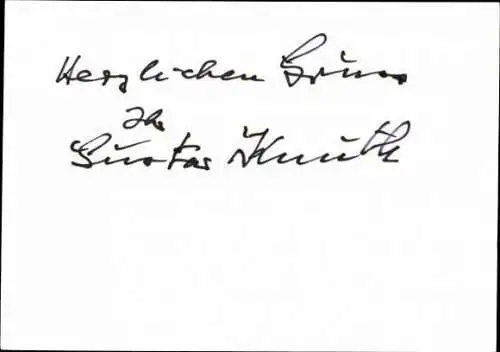 Herzlichen Gruss
Ihr
Gustav Knuth